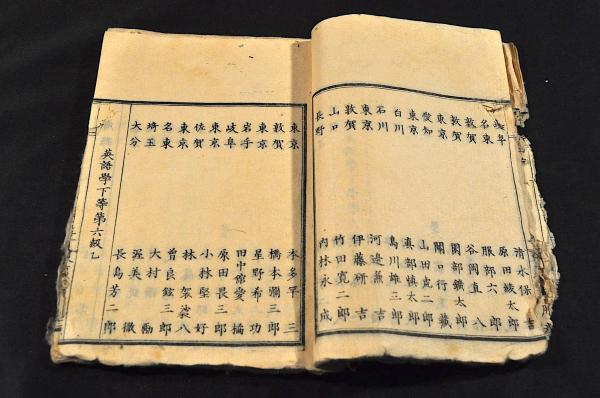 清水保吉
岐阜 原田綾太郎
名東 服部六郎
敦賀 谷岡直八
東京 関部鑛太郎
愛知 関口行藏
東京 山田虎二郎
白川 真部慎太郎
石川 島川雄三郎
東京 河邉兼吉
敦賀 伊藤研吉
山口 竹田寛二郎
長野 内林永成
東京 本多早三
敦賀 橋本彌三郎
東京 星野希功
岩手 田中舘愛橘
岐阜 原田畏三郎
東京 小林堅好
佐賀 林袈裟八
東京 曽良鉉三郎
名東 大村勵
埼玉 渥美徹
大分 長島芳二郎
英語學下等第六級乙